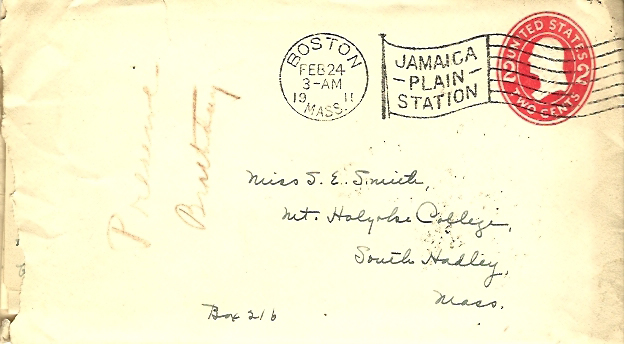 BOSTON
FEB 24
3-AM
19 11
MASS.
JAMAICA
PLAIN
STATION
UNITED STATES
2 2
TWO CENTS
Preserve
Miss S. E. Smith,
Mt. Holyoke College,
South Hadley,
Mass.
Box 216